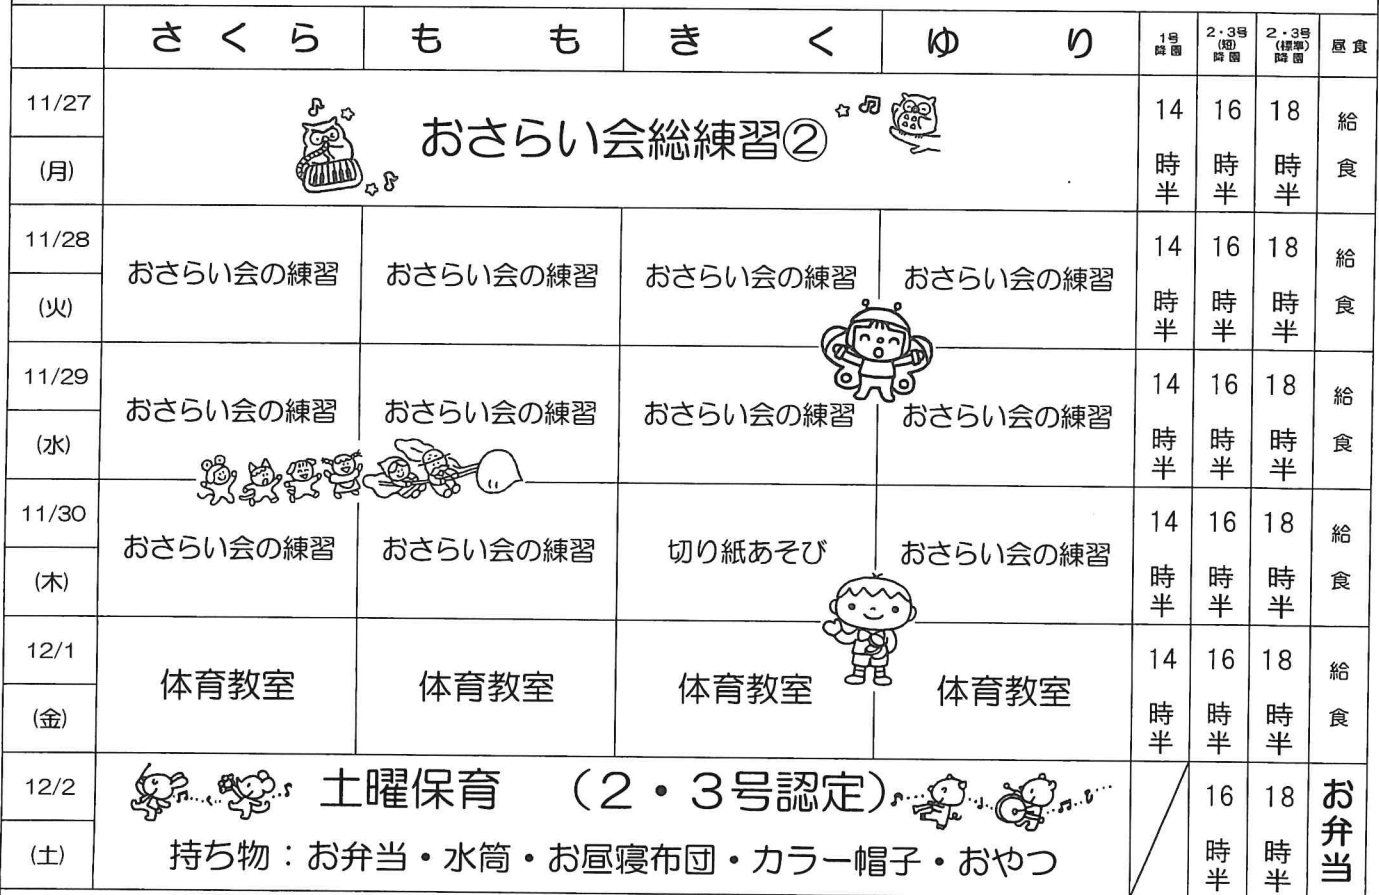 さくら もも きく ゆり 1号降園 2・3号(短)降園 2・3号(標準)降園 昼食
11/27 (月) おさらい会総練習② 14時半 16時半 18時半 給食
11/28 (火) おさらい会の練習 おさらい会の練習 おさらい会の練習 おさらい会の練習 14時半 16時半 18時半 給食
11/29 (水) おさらい会の練習 おさらい会の練習 おさらい会の練習 おさらい会の練習 14時半 16時半 18時半 給食
11/30 (木) おさらい会の練習 おさらい会の練習 切り紙あそび おさらい会の練習 14時半 16時半 18時半 給食
12/1 (金) 体育教室 体育教室 体育教室 体育教室 14時半 16時半 18時半 給食
12/2 (土) 土曜保育 (2・3号認定) 16時半 18時半 お弁当
持ち物：お弁当・水筒・お昼寝布団・カラー帽子・おやつ